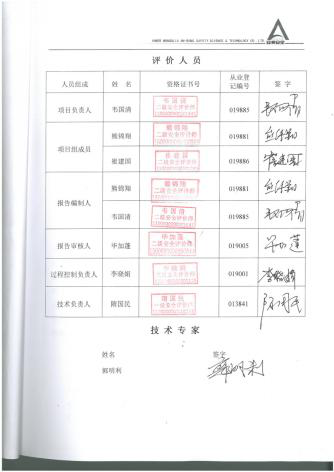 INNER MONGOLIA AN-RONG SAFETY SCIENCE & TECHNOLOGY CO.,LTD
评价人员
人员组成 姓 名 资格证书号 从业登记编号 签 字
项目负责人 韦国清 韦国清 二级安全评价师 019885
项目组成员 熊锦翔 熊锦翔 二级安全评价师 019881
崔建国 崔建国 二级安全评价师 019889 崔建国
报告编制人 熊锦翔 熊锦翔 二级安全评价师 019881
韦国清 韦国清 二级安全评价师 019885
报告审核人 毕加莲 毕加莲 二级安全评价师 019005 毕加莲
过程控制负责人 李晓娟 019001 李晓娟
技术负责人 隋国民 隋国民 一级安全评价师 013841 隋国民
技术专家
姓名 签字
郭明利 郭明利